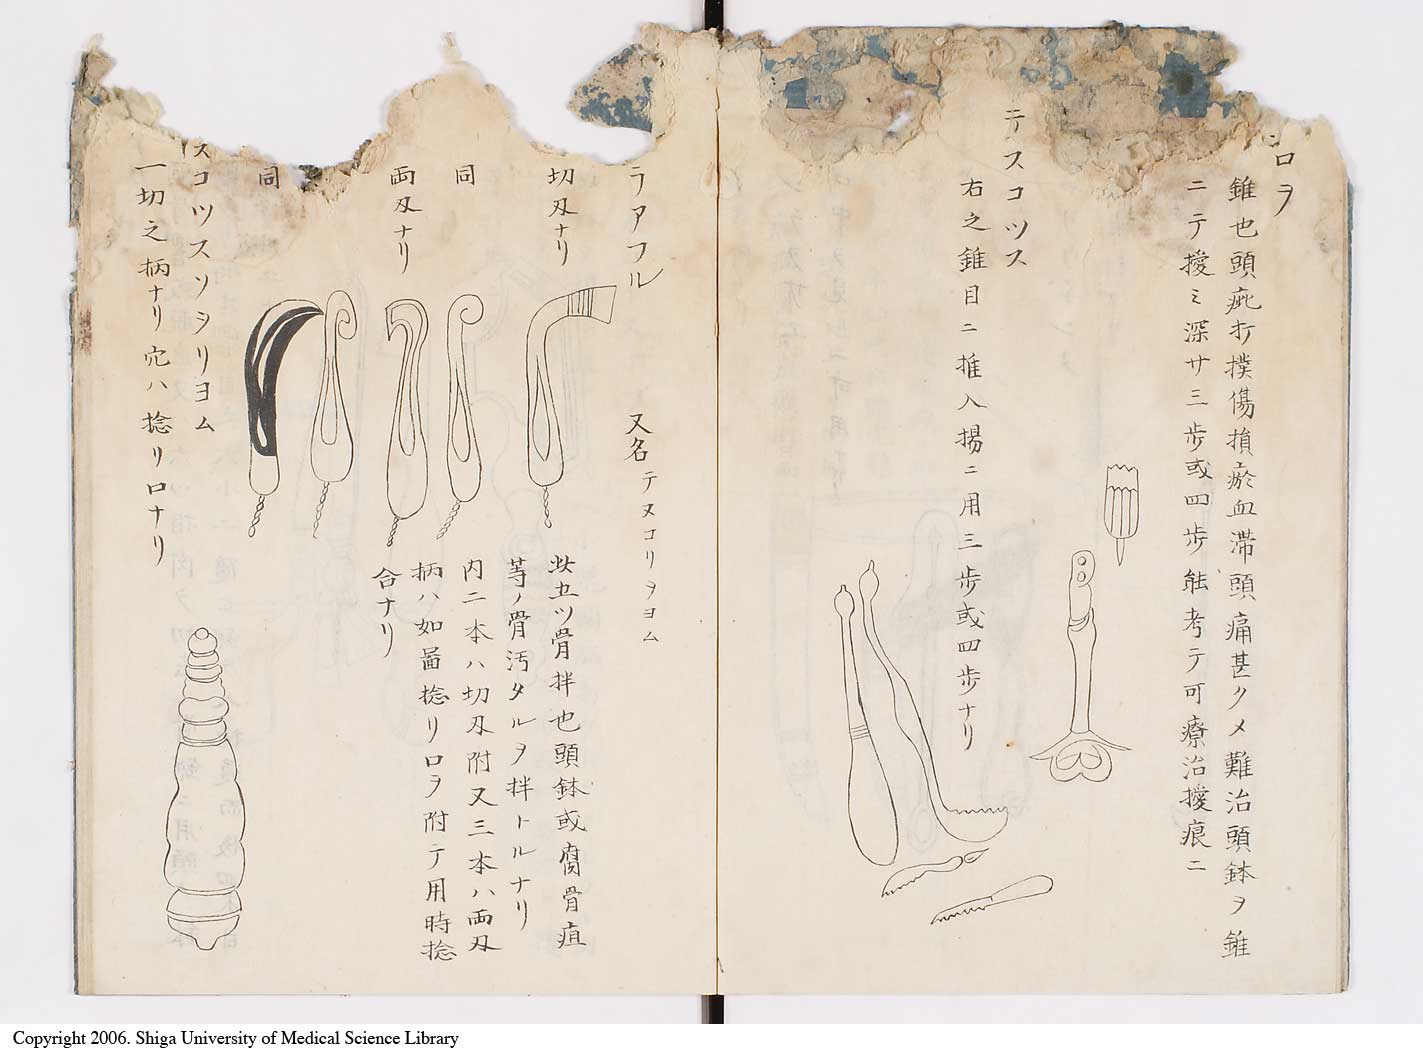 ロヲ
錐也頭疵打撲傷損瘀血滞頭痛甚クメ難治頭鉢ヲ錐
ニテ撹ミ深サ三歩或四歩能考テ可療治撹痕ニ
テスコツス
右之錐目ニ推入揚ニ用三歩或四歩ナリ
ラアフル
又名
テヌコリヲヨム
切刃ナリ
同
両刃ナリ
同
此五ツ骨拌也頭鉢或腐骨疽
等ノ骨汚タルヲ拌トルナリ
内二本ハ切刃附又三本ハ両刃
柄ハ如啚捻リロヲ附テ用時捻
合ナリ
スコツスソヲリヨム
一切之柄ナリ穴ハ捻リロナリ
Copyright 2006. Shiga University of Medical Science Library